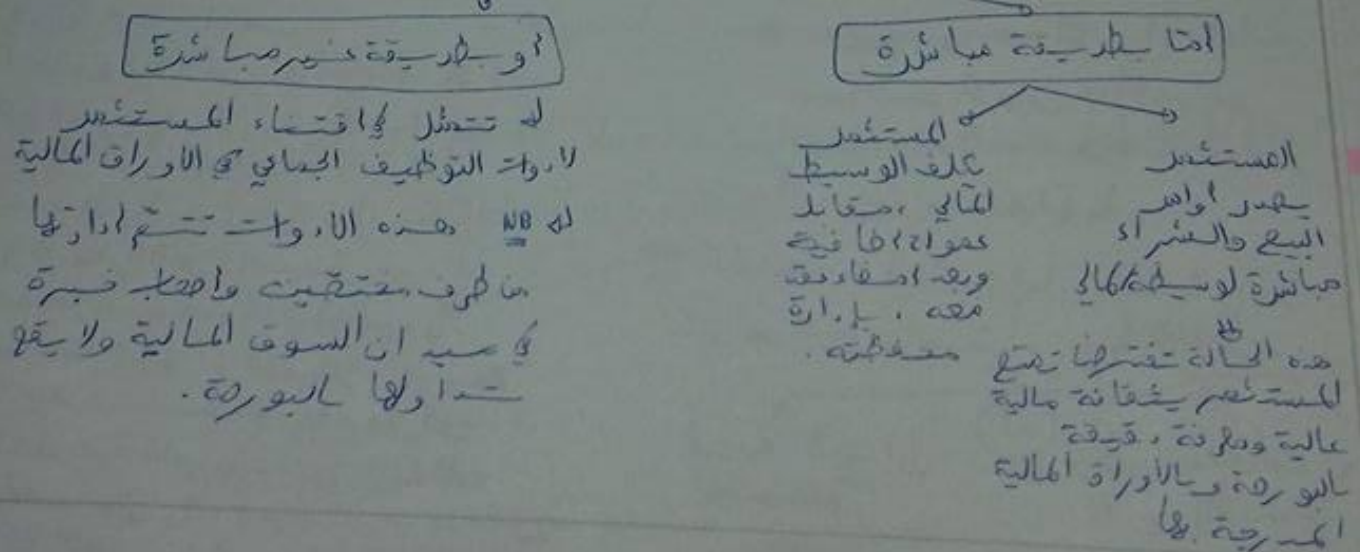 إمّا بطريقة مباشرة
المستثمر
يصدر أوامر
البيع والشراء
مباشرة لوسيطه المالي
هذه الحالة تفترض تمتع
المستثمر بثقافة مالية
عالية ومعرفة دقيقة
بالبورصة وبالأوراق المالية
المدرجة بها
المستثمر
يكلف الوسيط
المالي، مقابل
عمولة إضافية
وبعد إمضاء
معه، بإدارة
محفظته.
أو بطريقة غير مباشرة
تتمثل في اقتناء المستثمر
لأدوات التوظيف الجماعي في الأوراق المالية
NB هذه الأدوات تتم إدارتها
من طرف مختصين وأصحاب خبرة
في ميدان السوق المالية ولا يقع
تداولها بالبورصة.